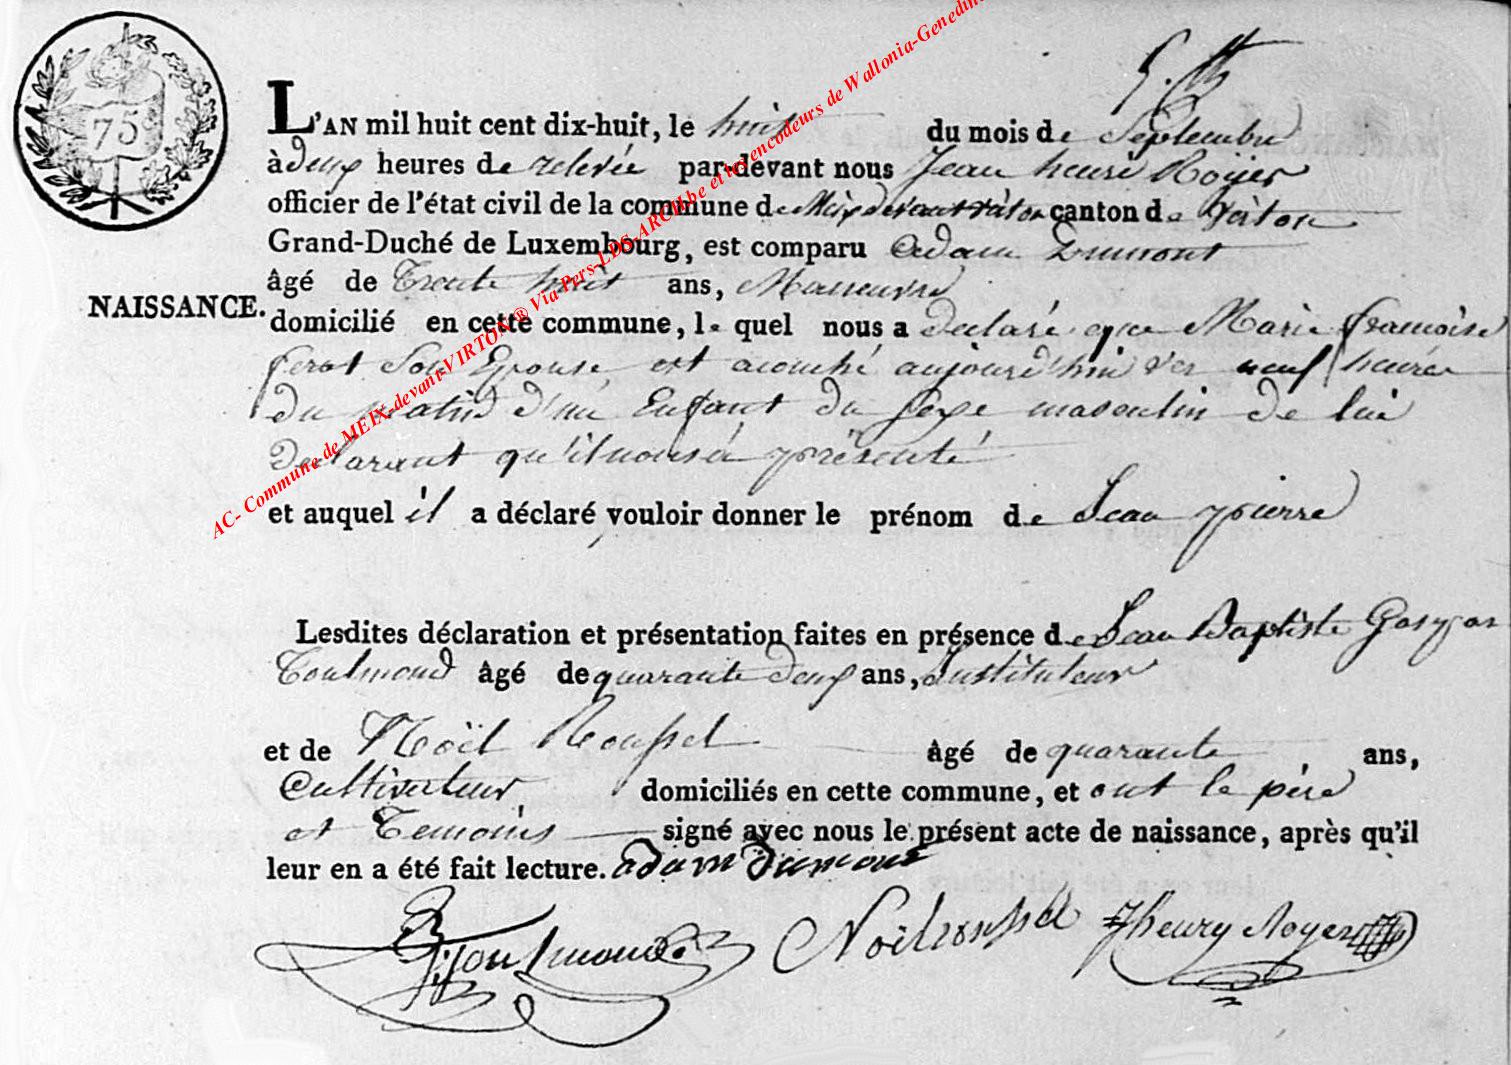 75
L'AN mil huit cent dix-huit, le huit du mois de Septembre
à deux heures de relevée par-devant nous Jean henri Royer
officier de l'état civil de la commune de Meix devant virton canton de virton
Grand-Duché de Luxembourg, est comparu adam Dumont
âgé de Trente huit ans, Manœuvre
NAISSANCE.
domicilié en cette commune, le quel nous a declaré que Marie françoise
ferot Son Epouse est acouché aujourd'hui vers neuf heures
du matin d'un Enfant du sexe masculin de lui
declarant qu'il nous a présenté
et auquel il a déclaré vouloir donner le prénom de Jean pierre
Lesdites déclaration et présentation faites en présence de Jean Baptiste Gaspar
Toulmond âgé de quarante deux ans, Instituteur
et de Noël Roussel âgé de quarante ans,
Cultivateur domiciliés en cette commune, et ont le père
et Temoins signé avec nous le présent acte de naissance, après qu'il
leur en a été fait lecture. adam dumont
Toulmond Noël roussel Jhenry Royer
AC- Commune de MEIX-devant-VIRTON ® Via Pers-LDS-ARCH.be et les encodeurs de Wallonia-Genedine